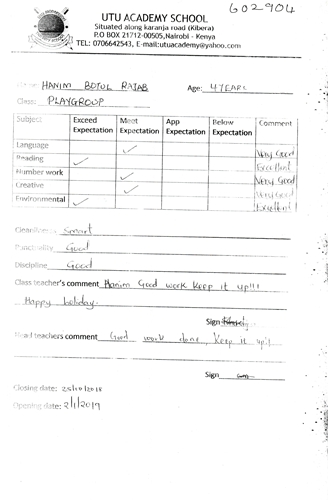 602904
UTU ACADEMY SCHOOL
Situated along karanja road (Kibera)
P.O BOX 21712-00505, Nairobi - Kenya
TEL: 0706642543, E-mail:utuacademy@yahoo.com
Name: HANIM BOTUL RAJAB Age: 4 YEARS
Class: PLAYGROUP
Subject Exceed Expectation Meet Expectation App Expectation Below Expectation Comment
Language ✓ Very Good
Reading ✓ Excellent
Number work ✓ Very Good
Creative ✓ Very Good
Environmental ✓ Excellent!
Cleanliness Smart
Punctuality Good
Discipline Good
Class teacher's comment Hanim Good work keep it up!!!
Happy holiday.
Sign
Head teachers comment Good work done, keep it up!!
Sign
Closing date: 25/10/2018
Opening date: 2/1/2019